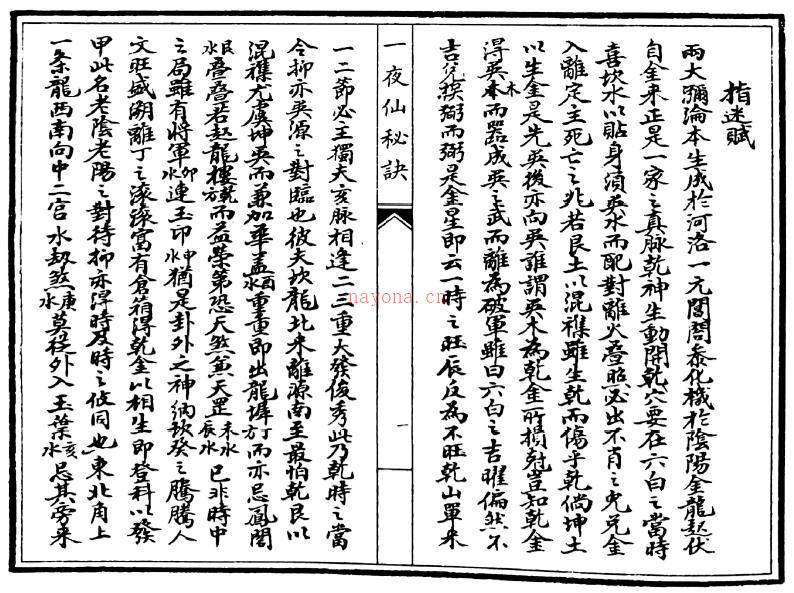 指迷賦
兩大彌淪本生成於河洛一元闔闢泰化機於陰陽金龍起伏
自金來正是一家之真脉乾神生動開乾穴要在六白之當時
喜坎水以貼身須巽水而配對離火疊昭必出不肖之兒兑金
入離定主死亡之兆若艮土以混襍雖生乾而傷乎乾倘坤土
以生金是先英後亦向英誰謂巽木為乾金所損尅豈知乾金
得巽木而器成英之武而離為破軍雖曰六白之吉曜偏然不
木
吉兑損弼而弼是金星即云一時之旺辰反為不旺乾山單來
一夜仙秘訣
一
一二節必主獨夫亥脉相逢二三重大發俊秀此乃乾時之當
令抑亦英源之對臨也彼夫坎龍北來離源南至最怕乾艮以
混襍尤虞坤英而兼加華盖酉水重重即出龍墀方而亦忌鳳閣
艮水疊疊若起龍樓乾方而益榮第恐天煞並天罡未水辰水已非時中
之局雖有將軍卯水連玉印申水猶是卦外之神納坎癸之騰騰人
文旺盛朔離丁之滾滾富有倉箱得乾金以相生即登科以發
甲此名老陰老陽之對待抑亦浮時及時之攸同也東北角上
一条龍西南向中二宫水劫煞庚水莫從外入玉葉亥水忌其旁来
nayona.cn